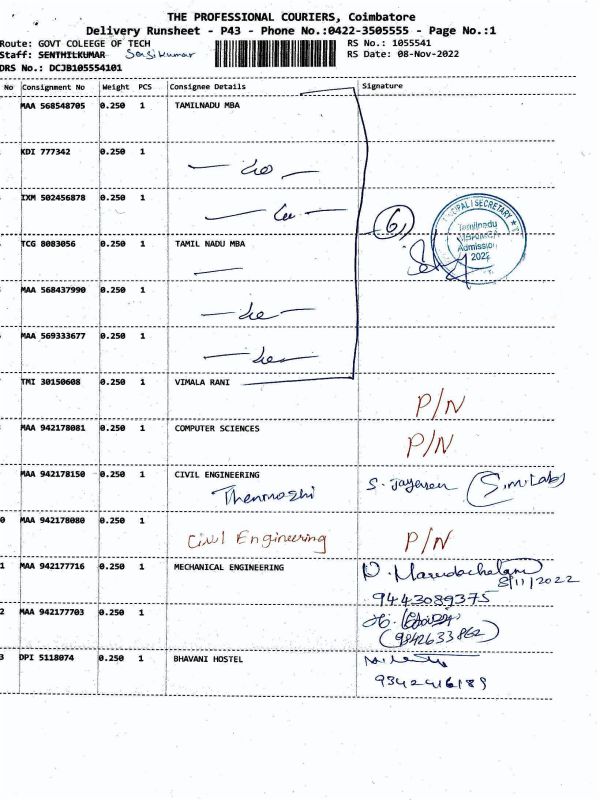 THE PROFESSIONAL COURIERS, Coimbatore
Delivery Runsheet - P43 - Phone No.:0422-3505555 - Page No.:1
Route: GOVT COLEEGE OF TECH RS No.: 1055541
Staff: SENTHILKUMAR Sasikumar RS Date: 08-Nov-2022
DRS No.: DCJB105554101
No Consignment No Weight PCS Consignee Details Signature
MAA 568548705 0.250 1 TAMILNADU MBA
KDI 777342 0.250 1
IXM 502456878 0.250 1
PRINCIPAL / SECRETARY
Tamilnadu
Admission
2022
6
TCG 8083056 0.250 1 TAMIL NADU MBA
MAA 568437990 0.250 1
MAA 569333677 0.250 1
TMI 30150608 0.250 1 VIMALA RANI P/N
MAA 942178081 0.250 1 COMPUTER SCIENCES P/N
MAA 942178150 0.250 1 CIVIL ENGINEERING
Thenmozhi
0 MAA 942178080 0.250 1
Civil Engineering P/N
1 MAA 942177716 0.250 1 MECHANICAL ENGINEERING
8/11/2022
9443089375
2 MAA 942177703 0.250 1
(9842633862)
3 DPI 5118074 0.250 1 BHAVANI HOSTEL
9342416189